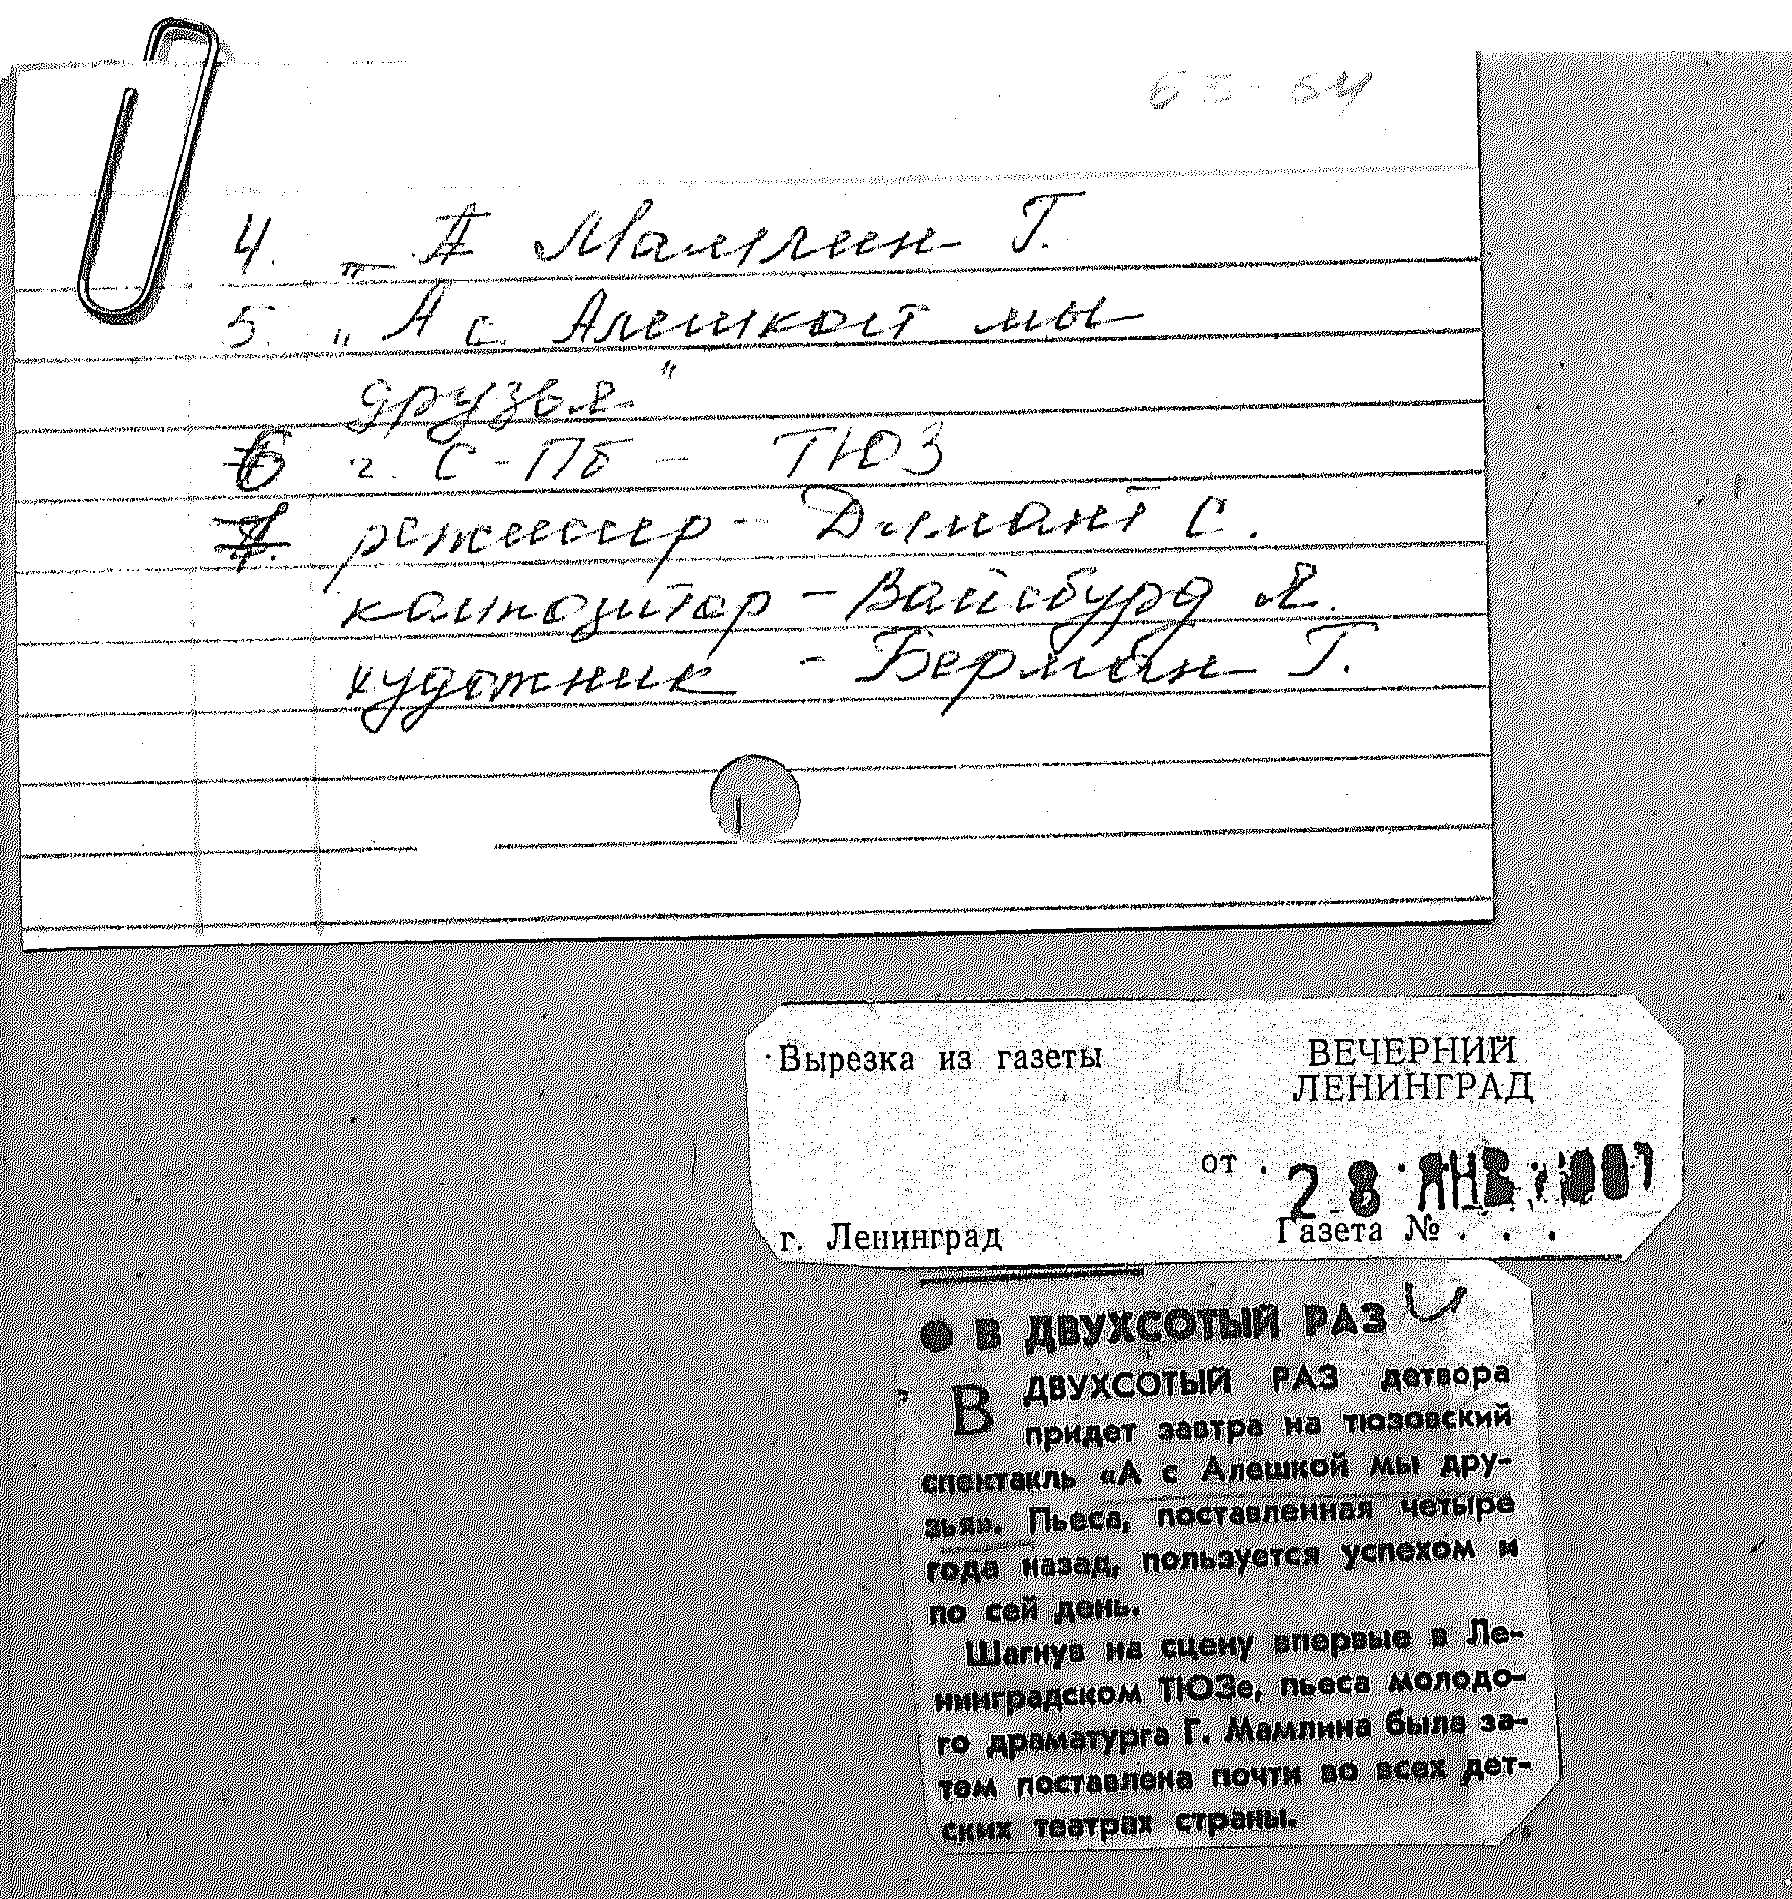 63-64
4. „ — А Мамлин Г.
5. „А с Алешкой мы
друзья"
6 г. С-Пб - ТЮЗ
режиссер - Димант С.
композитор - Вайсбурд Я.
художник - Берман Г.
Вырезка из газеты
ВЕЧЕРНИЙ
ЛЕНИНГРАД
от 28 ЯНВ
г. Ленинград Газета № . . .
● В ДВУХСОТЫЙ РАЗ
В ДВУХСОТЫЙ РАЗ детвора
придет завтра на тюзовский
спектакль «А с Алешкой мы дру-
зья». Пьеса, поставленная четыре
года назад, пользуется успехом и
по сей день.
Шагнув на сцену впервые в Ле-
нинградском ТЮЗе, пьеса молодо-
го драматурга Г. Мамлина была за-
тем поставлена почти во всех дет-
ских театрах страны.